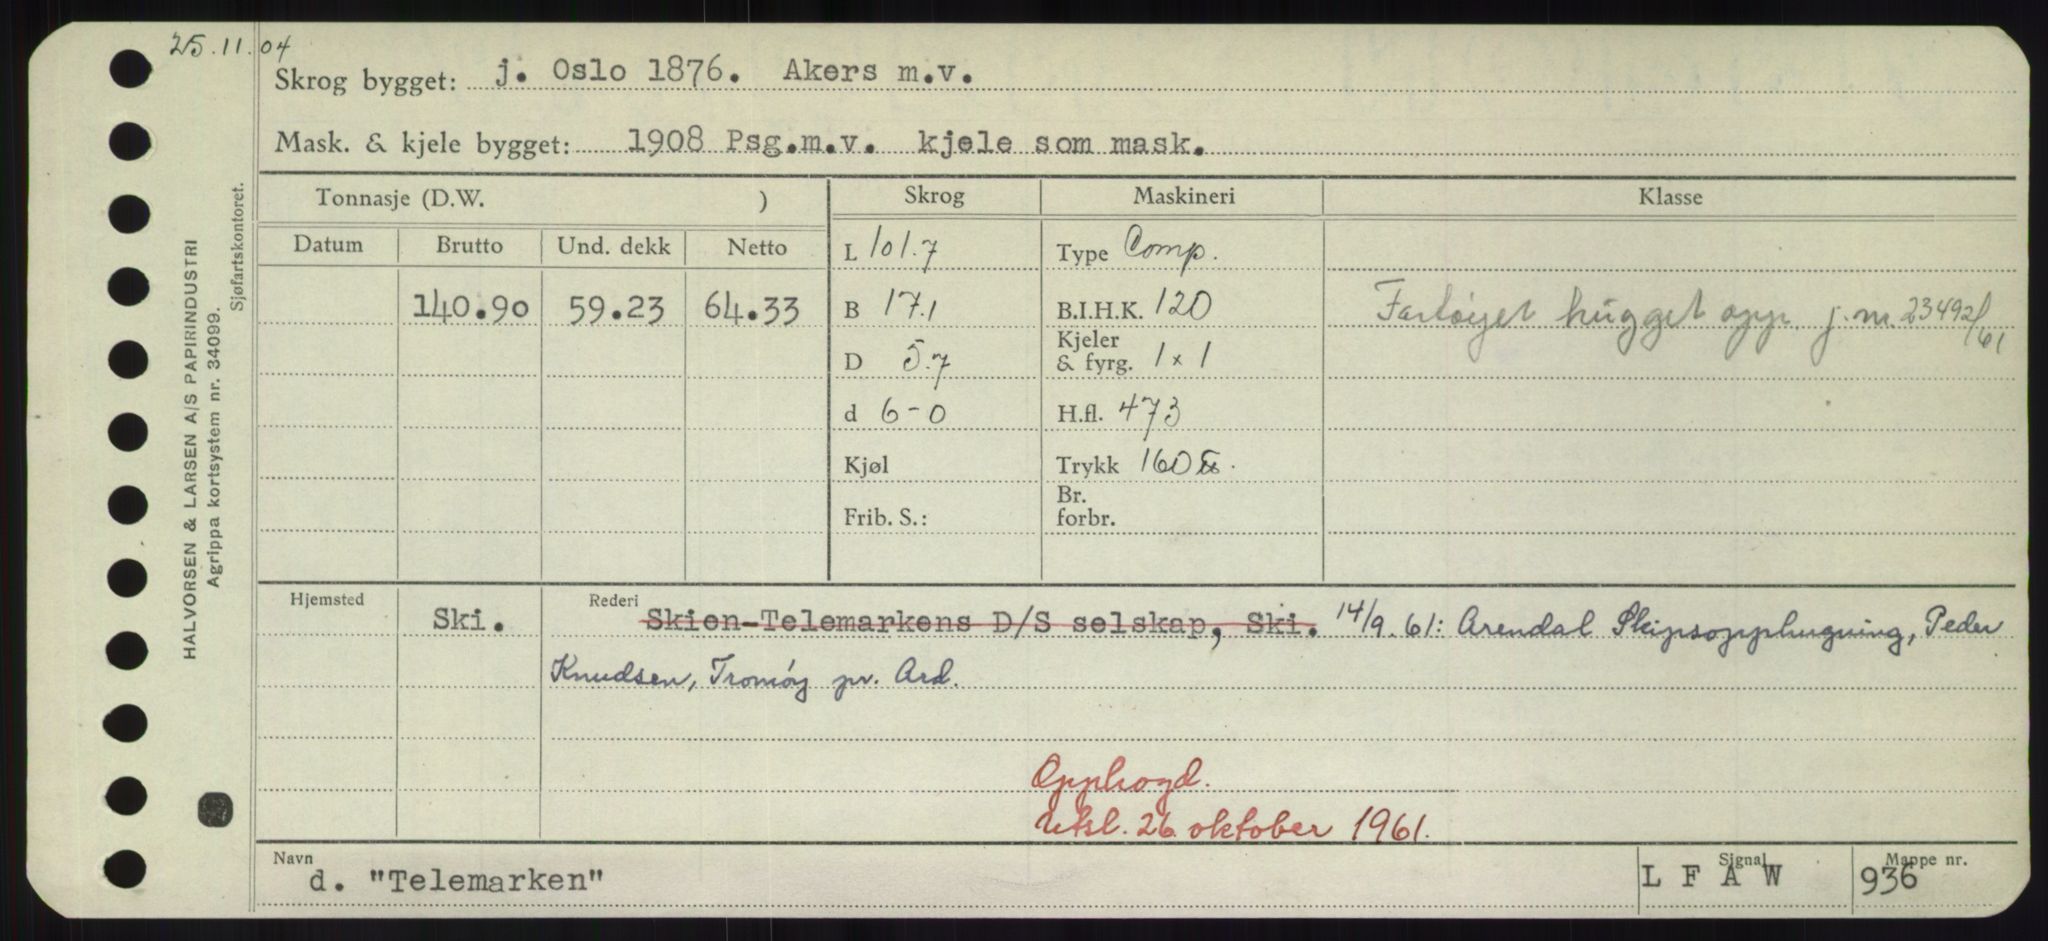 25.11.04
Skrog bygget: j. Oslo 1876. Akers m.v.
Mask. & kjele bygget: 1908 Psg.m.v. kjele som mask.
Tonnasje (D.W. ) Skrog Maskineri Klasse
Datum Brutto Und. dekk Netto L 101.7 Type Comp.
140.90 59.23 64.33 B 17.1 B.I.H.K. 120 Fartøyet hugget opp. j.nr. 23492/61
D 5.7 Kjeler & fyrg. 1 x 1
d 6-0 H.fl. 473
Kjøl Trykk 160
Frib. S.: Br. forbr.
Hjemsted Ski. Rederi Skien-Telemarkens D/S selskap, Ski. 14/9.61: Arendal Skipsopphugning, Peder
Knudsen, Tromøy pr. Ard.
Opphogd.
Utsl. 26. oktober 1961.
Navn d. "Telemarken" Signal L F A W Mappe nr. 936
HALVORSEN & LARSEN A/S PAPIRINDUSTRI
Agrippa kortsystem nr. 34099.
Sjøfartskontoret.